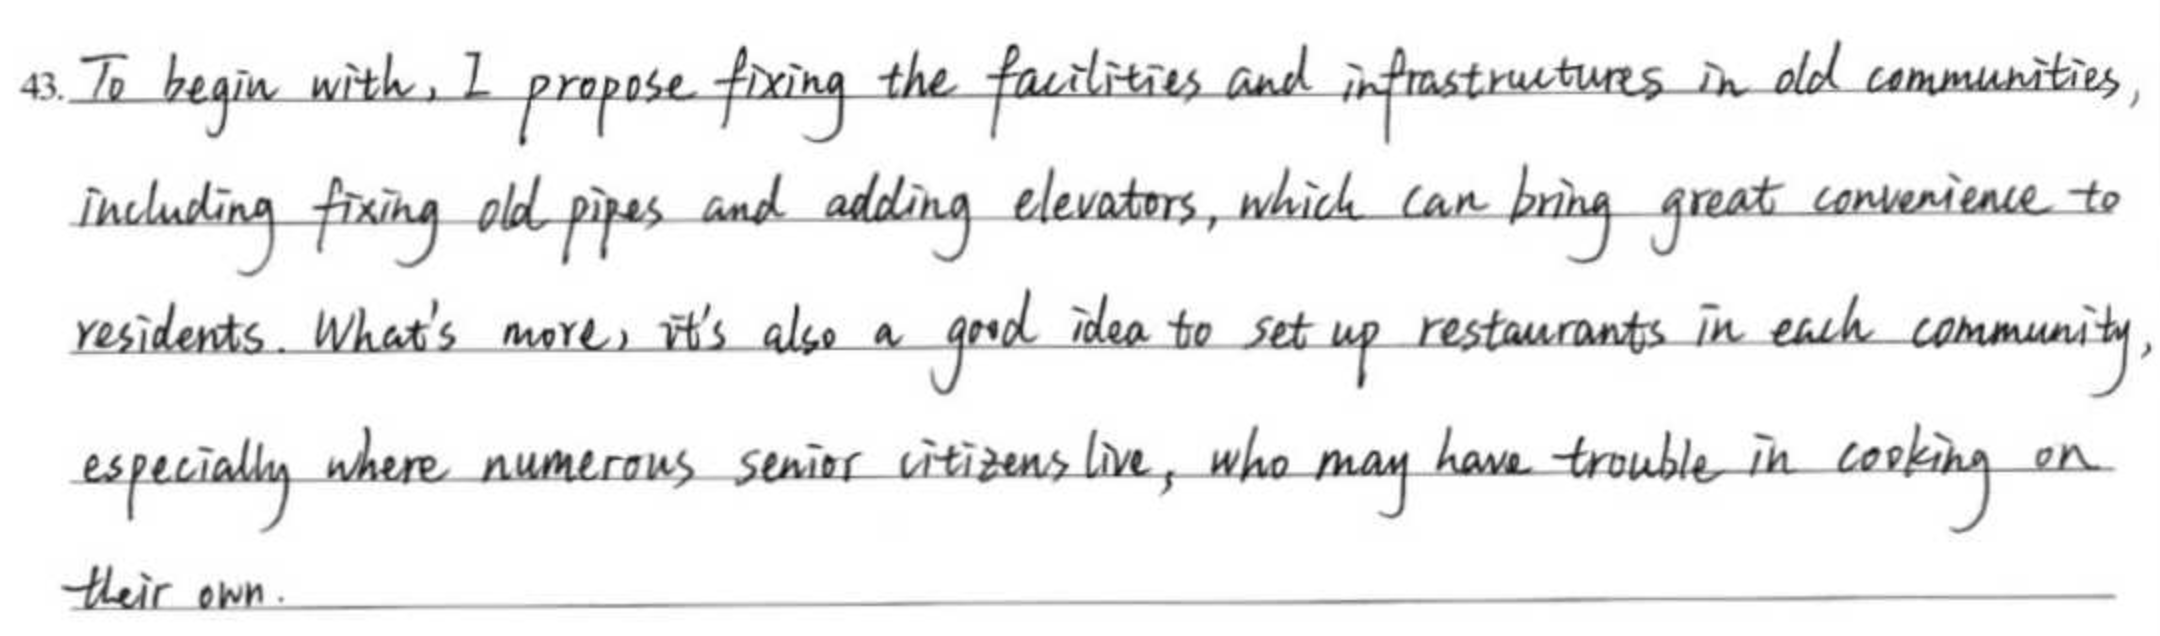 43. To begin with, I propose fixing the facilities and infrastructures in old communities,
including fixing old pipes and adding elevators, which can bring great convenience to
residents. What's more, it's also a good idea to set up restaurants in each community,
especially where numerous senior citizens live, who may have trouble in cooking on
their own.